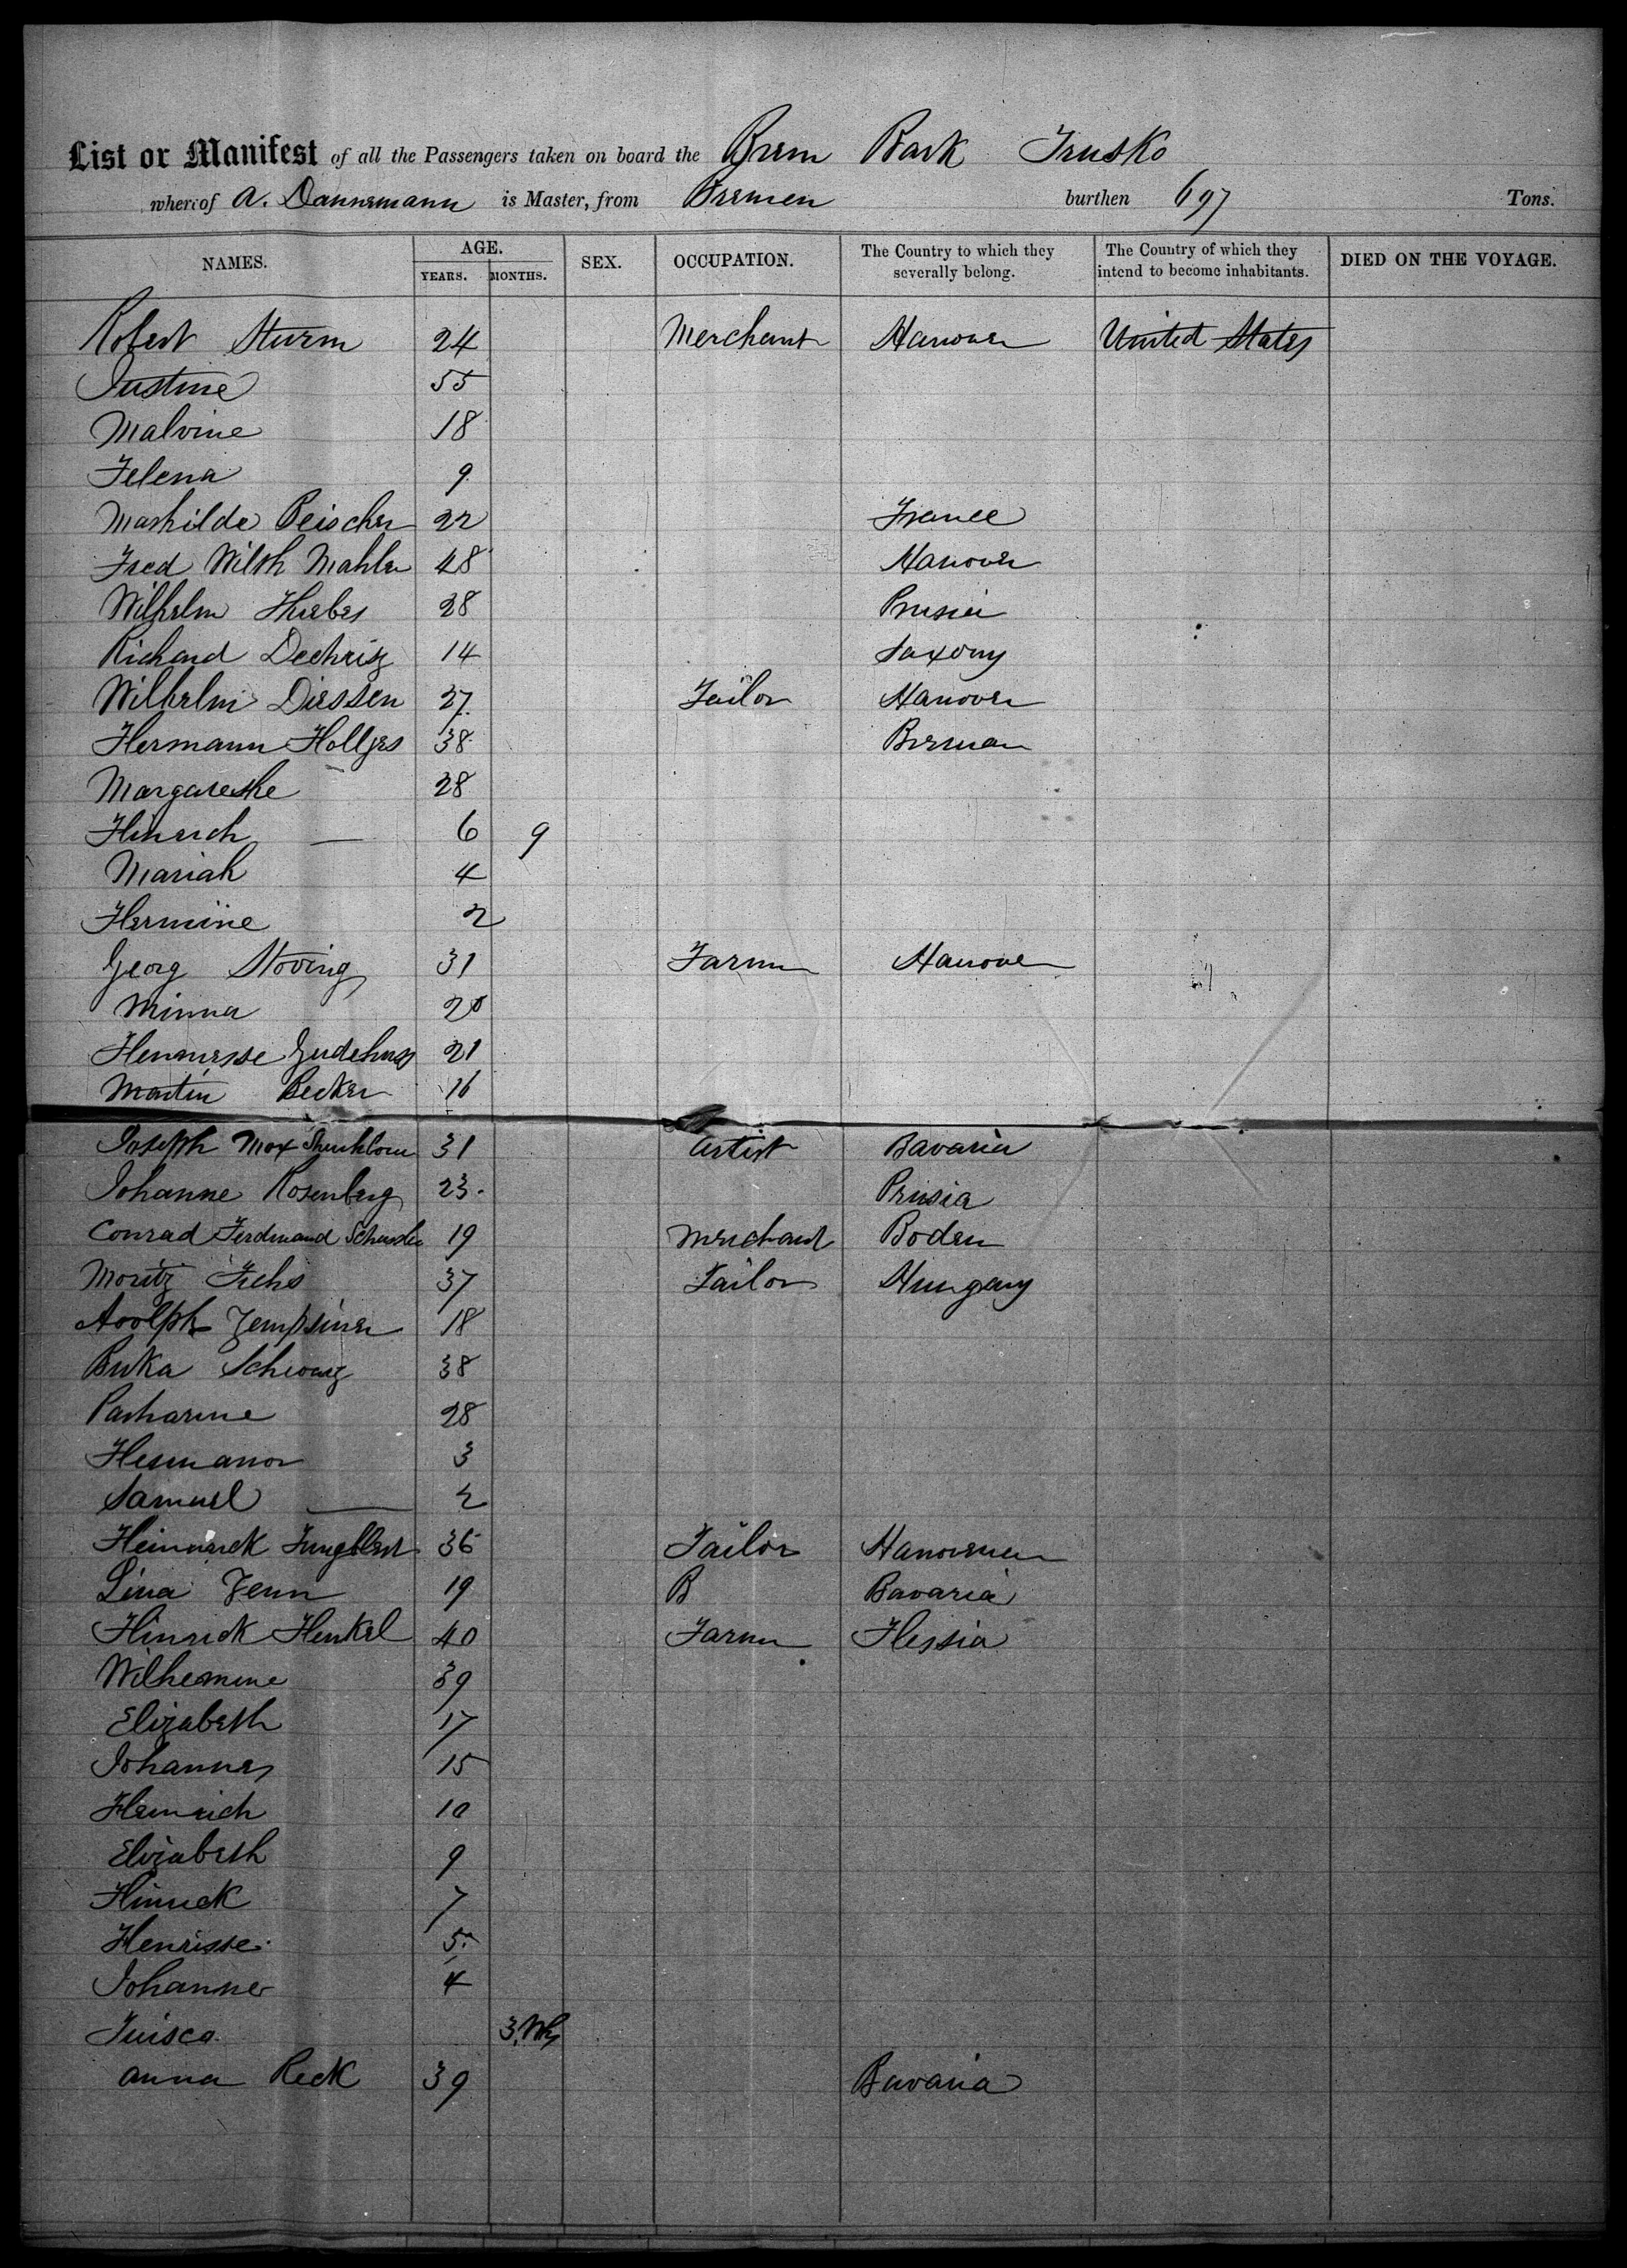 List or Manifest of all the Passengers taken on board the Brem Bark Trusko
whereof A. Dannemann is Master, from Bremen burthen 697 Tons.
NAMES. AGE. YEARS. MONTHS. SEX. OCCUPATION. The Country to which they severally belong. The Country of which they intend to become inhabitants. DIED ON THE VOYAGE.
Robert Sturm 24 Merchant Hanover United States
Justine 55
Malvine 18
Felena 9
Mathilde Beischer 22 France
Fred Wilth Mahler 48 Hanover
Wilhelm Huebes 28 Prusia
Richard 14 Saxony
Wilhelm Dirssen 27 Tailor Hanover
Hermann Holljes 38 Breman
Margarethe 28
Hinrich — 6 9
Mariah 4
Hermine 2
Georg Stoving 31 Farmer Hanover
Minna 20
Gudehuss 21
Martin Becker 16
Joseph Max 31 Artist Bavaria
Johanne Rosenberg 23 Prusia
Conrad Ferdinand Schuster 19 Merchant Boden
Moritz Fuchs 37 Tailor Hungary
Adolph 18
Schwarz 38
Patharine 28
Hermann 3
Samuel — 2
Heinrick Jungblut 36 Tailor Hanoveran
Lina Zenn 19 B Bavaria
Hinrick Henkel 40 Farmer Hessia
Wilhemine 39
Elizabeth 17
Johannes 15
Heinrich 10
Elizabeth 9
Hinrick 7
Henrisse 5
Johanne 4
Tuisco 3 Wks
Anna Reck 39 Bavaria